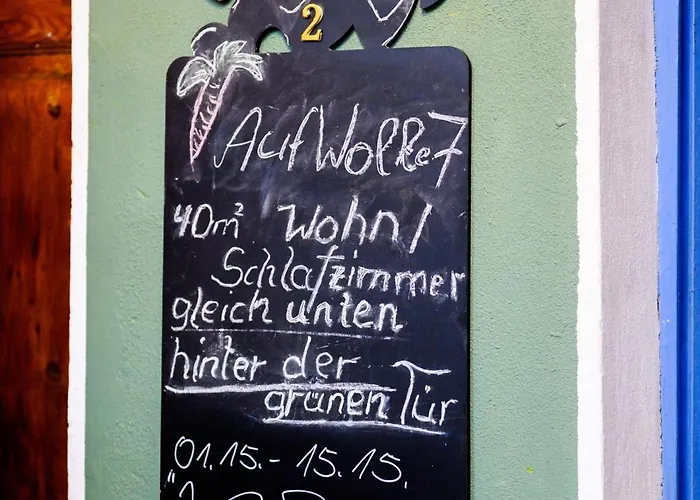 2
Auf Wolke 7
40m² Wohn/
Schlafzimmer
gleich unten
hinter der
grünen Tür
01.15.-15.15.